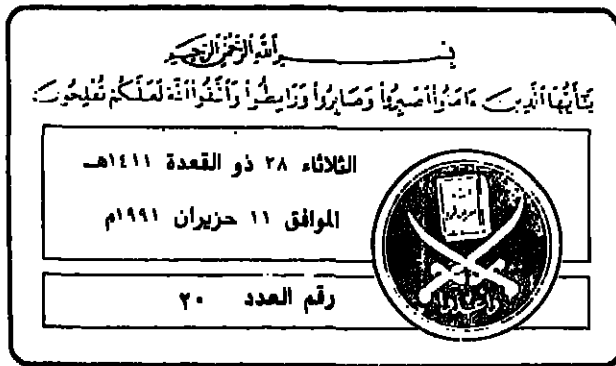 بسم الله الرحمن الرحيم
يَٰٓأَيُّهَا ٱلَّذِينَ ءَامَنُوا۟ ٱصْبِرُوا۟ وَصَابِرُوا۟ وَرَابِطُوا۟ وَٱتَّقُوا۟ ٱللَّهَ لَعَلَّكُمْ تُفْلِحُونَ
الثلاثاء ٢٨ ذو القعدة ١٤١١هـ
الموافق ١١ حزيران ١٩٩١م
رقم العدد ٢٠